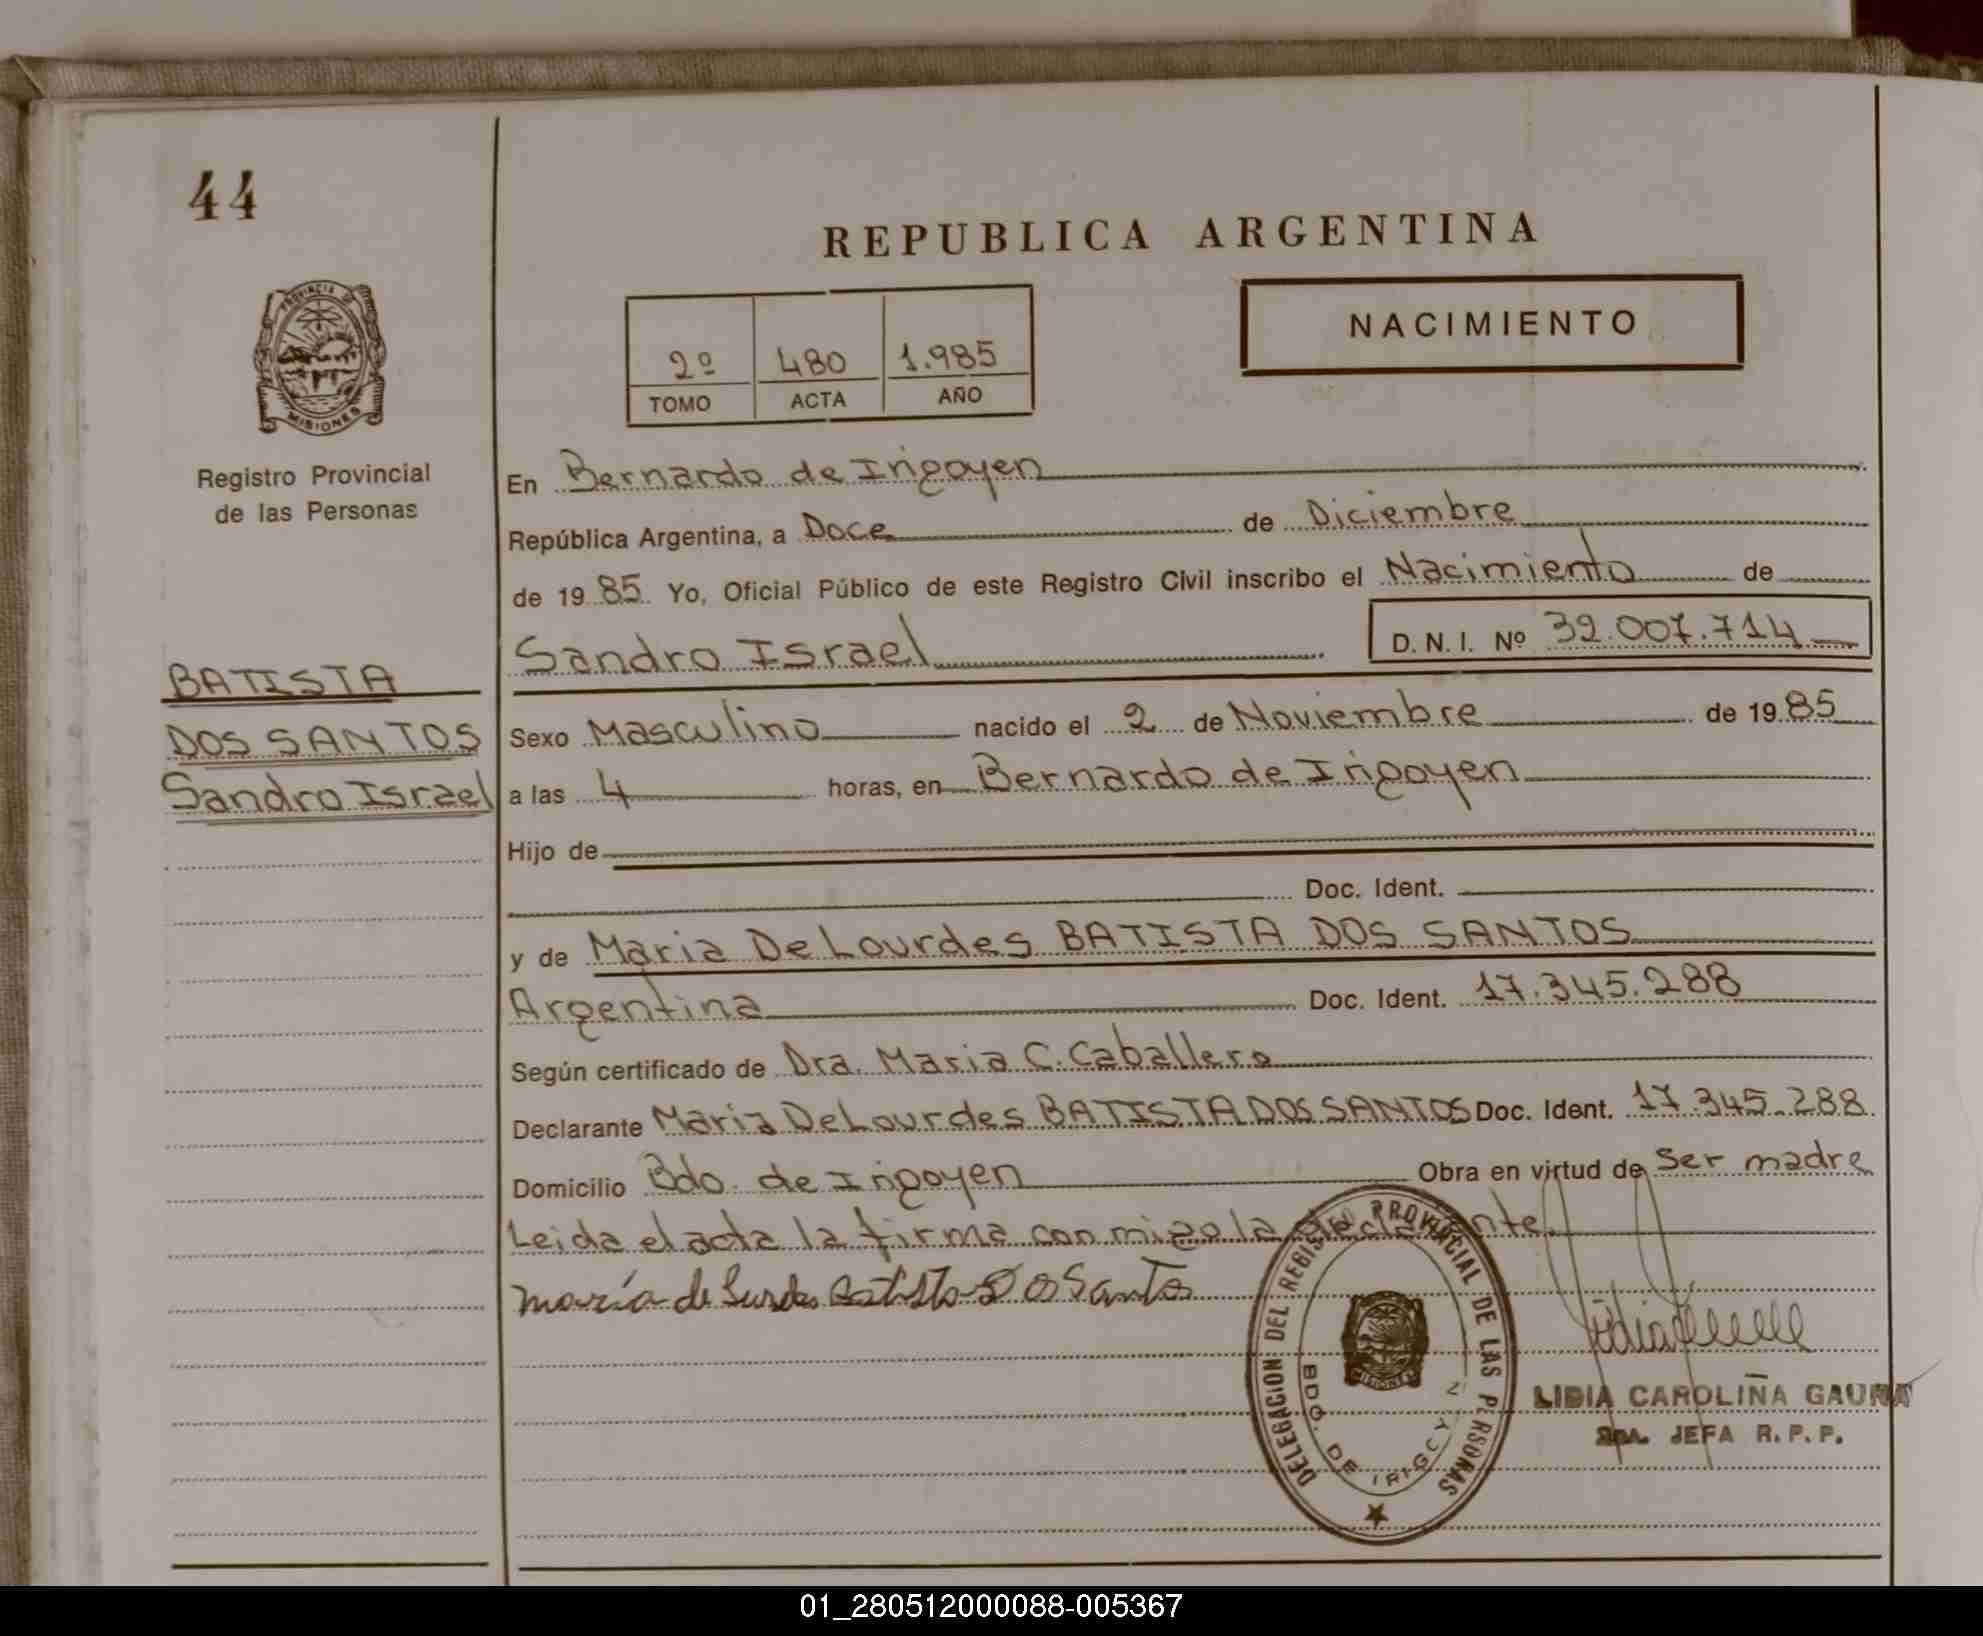 44
REPUBLICA ARGENTINA
PROVINCIA DE
MISIONES
NACIMIENTO
2º 480 1.985
TOMO ACTA AÑO
Registro Provincial
de las Personas
En Bernardo de Irigoyen
República Argentina, a Doce de Diciembre
de 1985 Yo, Oficial Público de este Registro Civil inscribo el Nacimiento de
Sandro Israel D.N.I. Nº 32.007.714
BATISTA
DOS SANTOS
Sandro Israel
Sexo Masculino nacido el 2 de Noviembre de 1985
a las 4 horas, en Bernardo de Irigoyen
Hijo de
Doc. Ident.
y de Maria De Lourdes BATISTA DOS SANTOS
Argentina Doc. Ident. 17.345.288
Según certificado de Dra. Maria C. Caballero
Declarante Maria De Lourdes BATISTA DOS SANTOS Doc. Ident. 17.345.288
Domicilio Bdo. de Irigoyen Obra en virtud de ser madre
Leida el acta la firma conmigo la declarante.
maría de Lurdes Batista DOS Santos
DELEGACION DEL REGISTRO PROVINCIAL DE LAS PERSONAS
BDO. DE IRIGOYEN
MISIONES
LIDIA CAROLINA GAUNA
JEFA R.P.P.
01_280512000088-005367